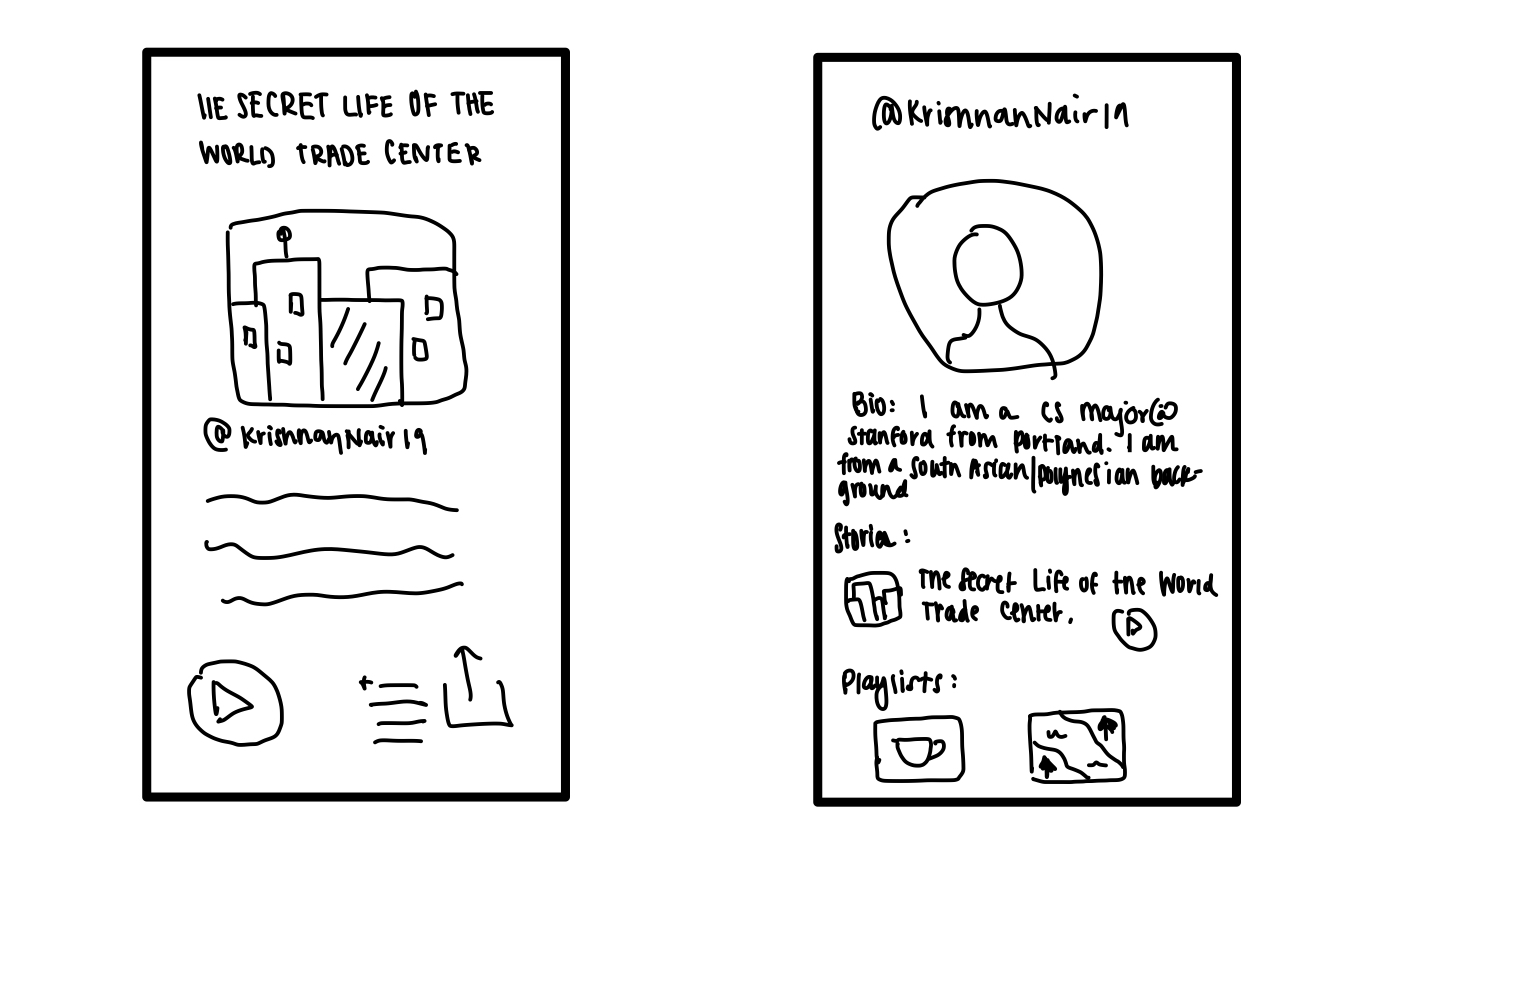 THE SECRET LIFE OF THE
WORLD TRADE CENTER
@KrishnanNair19
@KrishnanNair19
Bio: I am a CS major@
stanford from portland. I am
from a South Asian/polynesian back-
ground
Stories:
The Secret Life of the World
Trade Center.
Playlists: